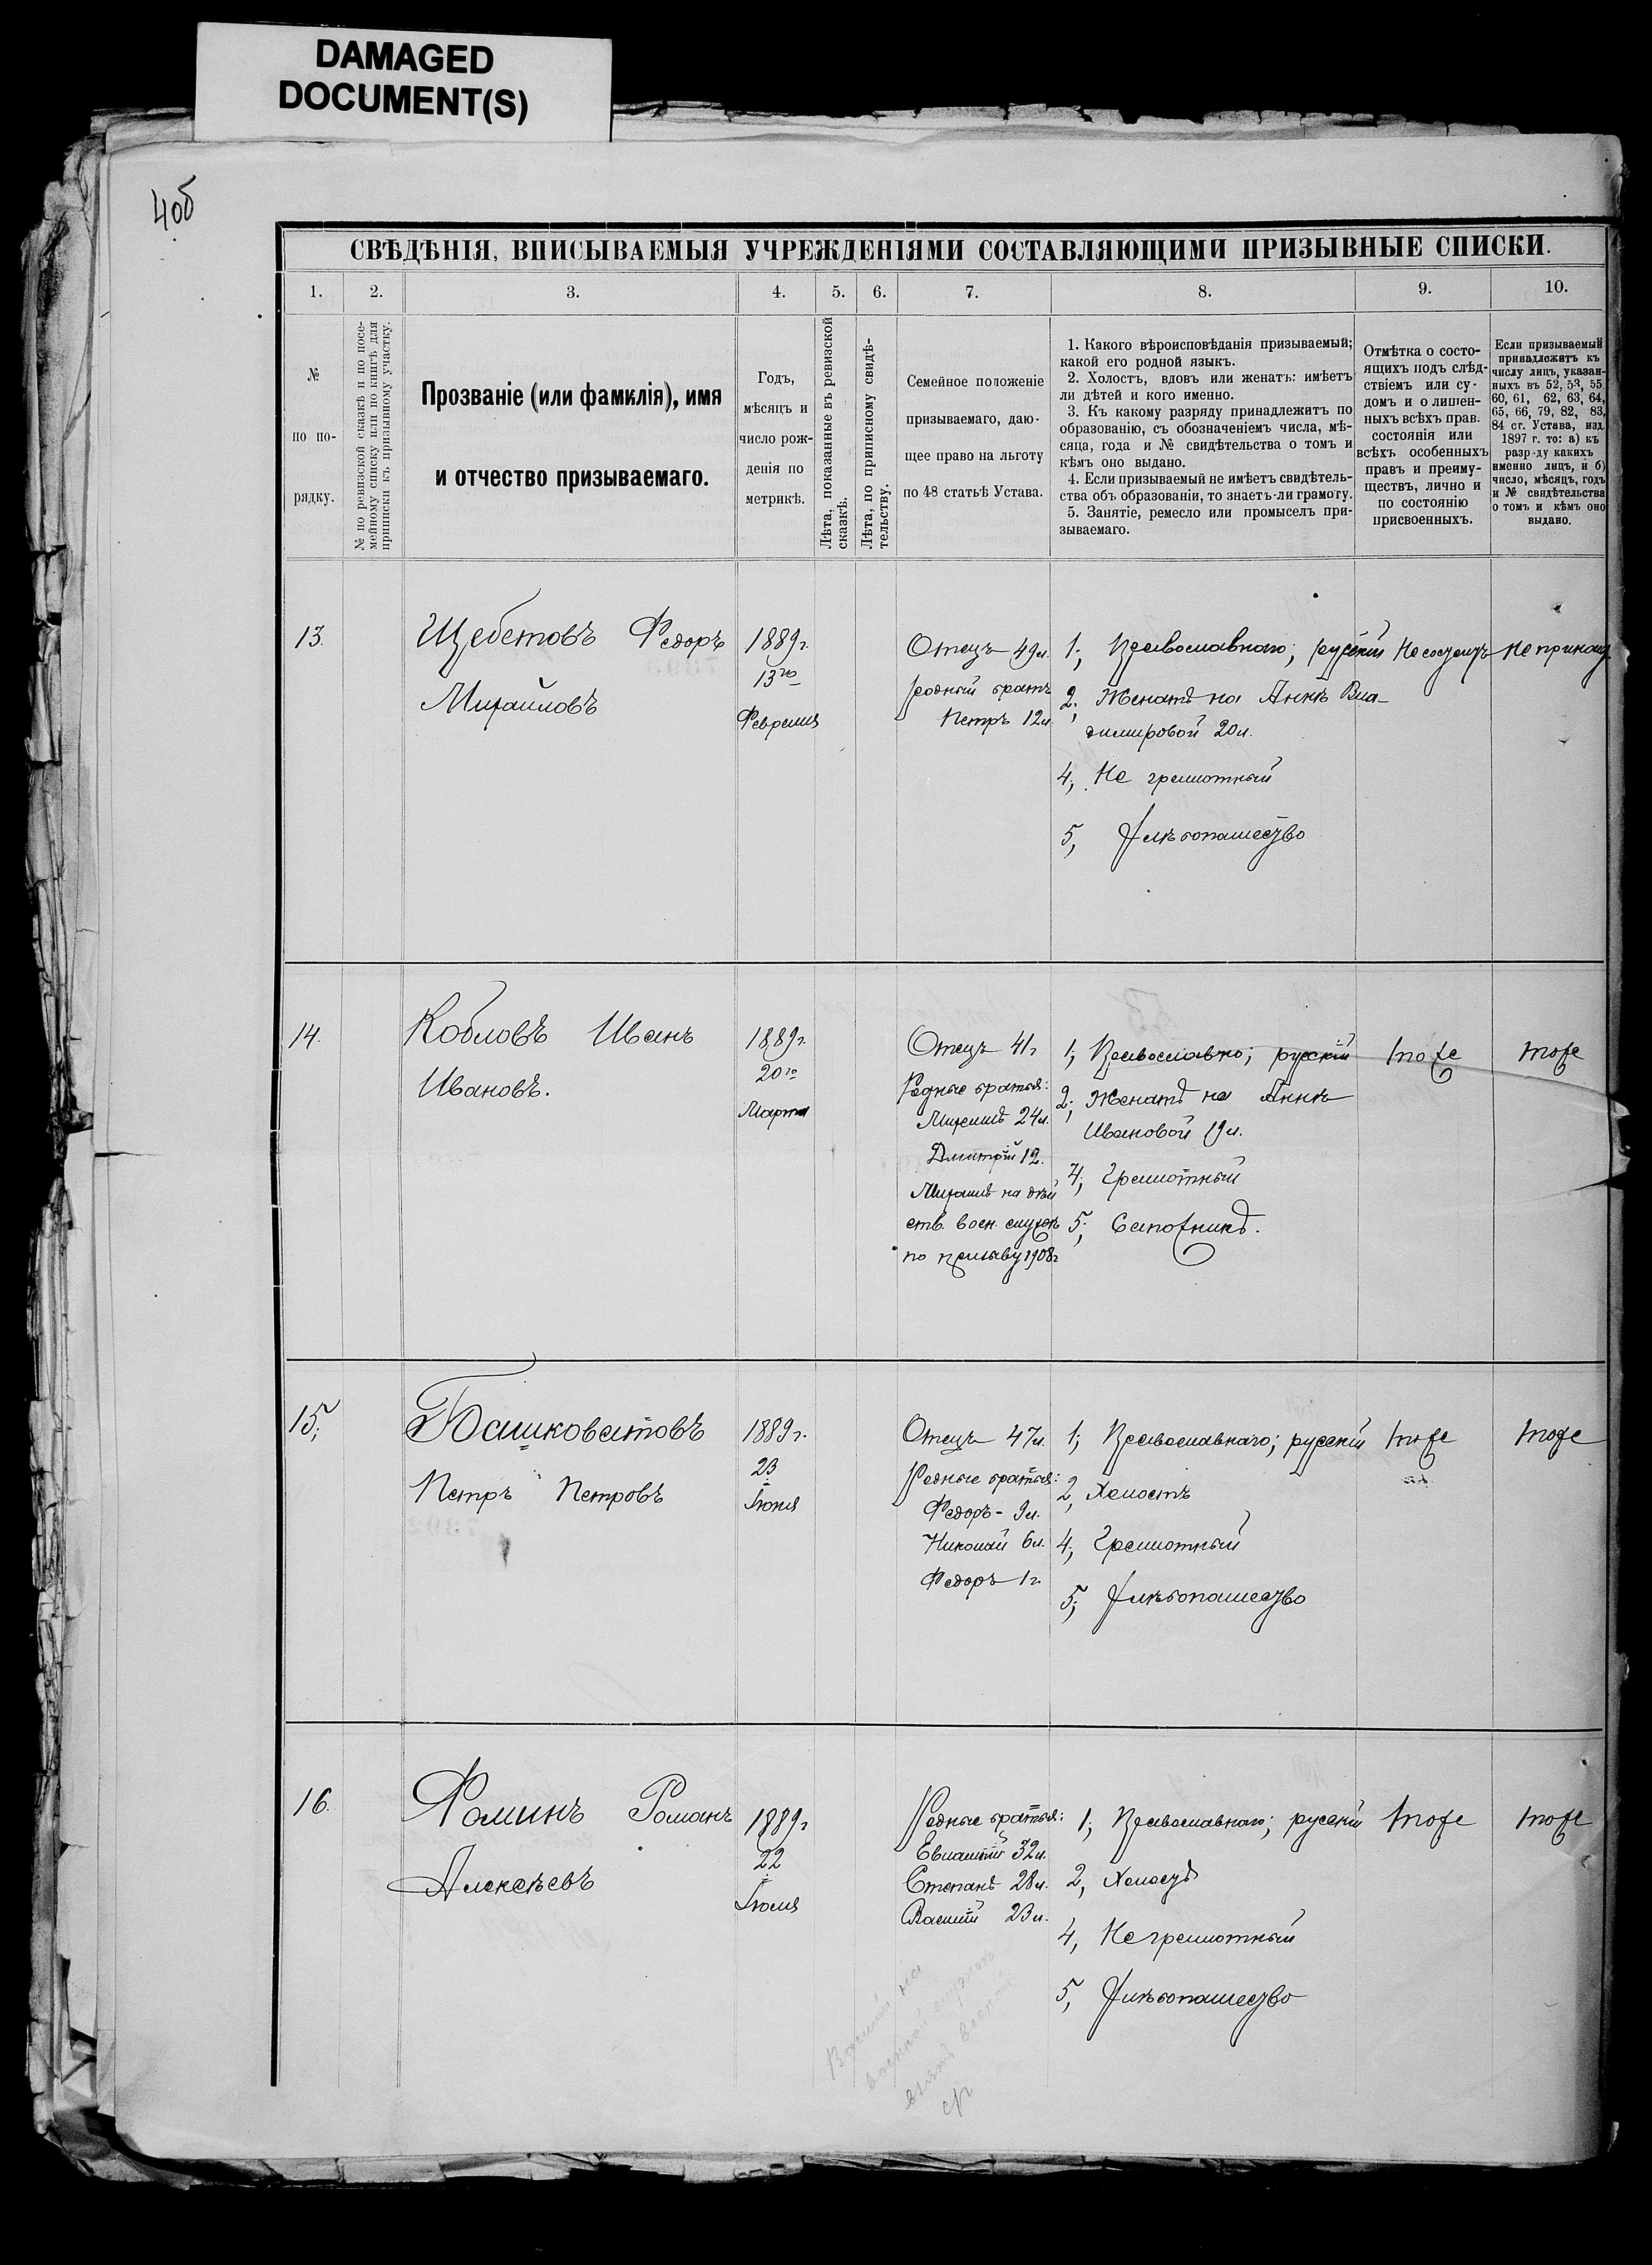 DAMAGED
DOCUMENT(S)
40б
СВѢДѢНІЯ, ВПИСЫВАЕМЫЯ УЧРЕЖДЕНІЯМИ СОСТАВЛЯЮЩИМИ ПРИЗЫВНЫЕ СПИСКИ.
1. 2. 3. 4. 5. 6. 7. 8. 9. 10.
№
по по-
рядку.
№ по ревизской сказкѣ и по посе-
мейному списку или по книгѣ для
приписки къ призывному участку.
Прозваніе (или фамилія), имя
и отчество призываемаго.
Годъ,
мѣсяцъ и
число рож-
денія по
метрикѣ.
Лѣта, показанные въ ревизской
сказкѣ.
Лѣта, по приписному свидѣ-
тельству.
Семейное положеніе
призываемаго, даю-
щее право на льготу
по 48 статьѣ Устава.
1. Какого вѣроисповѣданія призываемый;
какой его родной языкъ.
2. Холостъ, вдовъ или женатъ: имѣетъ
ли дѣтей и кого именно.
3. Къ какому разряду принадлежитъ по
образованію, съ обозначеніемъ числа, мѣ-
сяца, года и № свидѣтельства о томъ и
кѣмъ оно выдано.
4. Если призываемый не имѣетъ свидѣтель-
ства объ образованіи, то знаетъ-ли грамоту.
5. Занятіе, ремесло или промыселъ при-
зываемаго.
Отмѣтка о состо-
ящихъ подъ слѣд-
ствіемъ или су-
домъ и о лишен-
ныхъ всѣхъ прав.
состоянія или
всѣхъ особенныхъ
правъ и преиму-
ществъ, лично и
по состоянію
присвоенныхъ.
Если призываемый
принадлежитъ къ
числу лицъ, указан-
ныхъ въ 52, 53, 55,
60, 61, 62, 63, 64,
65, 66, 79, 82, 83,
84 ст. Устава, изд.
1897 г. то: а) къ
разр-ду какихъ
именно лицъ, и б)
число, мѣсяцъ, годъ
и № свидѣтельства
о томъ и кѣмъ оно
выдано.
13.
Щебетовъ Федоръ
Михайловъ
1889г.
13го
Февраля
Отецъ 49л.
родный братъ
Петръ 12л.
1; Православнаго; русскій
2; Женатъ на Аннѣ Вла-
димировой 20л.
4; Не грамотный
5, Хлѣбопашество
Не состоитъ
Не принад.
14.
Кобловъ Иванъ
Ивановъ.
1889г.
20го
Марта
Отецъ 41г
Родные братья:
Михаилъ 24л.
Дмитрій 12.
Михаилъ на дѣй
ств. воен. служб
по призыву 1908г
1; Православно; русскій
2; Женатъ на Аннѣ
Ивановой 19л.
4; Грамотный
5; Сапожникъ.
тоже
тоже
15;
Башковатовъ
Петръ Петровъ
1889г.
23
Іюня
Отецъ 47л.
Родные братья:
Федоръ - 9л.
Николай 6л.
Федоръ 1г.
1; Православнаго; русскій
2, Холостъ
4; Грамотный
5; Хлѣбопашество
тоже
тоже
16.
Фоминъ Романъ
Алексѣевъ
1889г
22
Іюля
Родные братья:
Евлампій 32л.
Степанъ 28л.
Василій 23л.
1; Православнаго; русскій
2, Холостъ
4, Не грамотный
5, Хлѣбопашество
тоже
тоже
Василій на